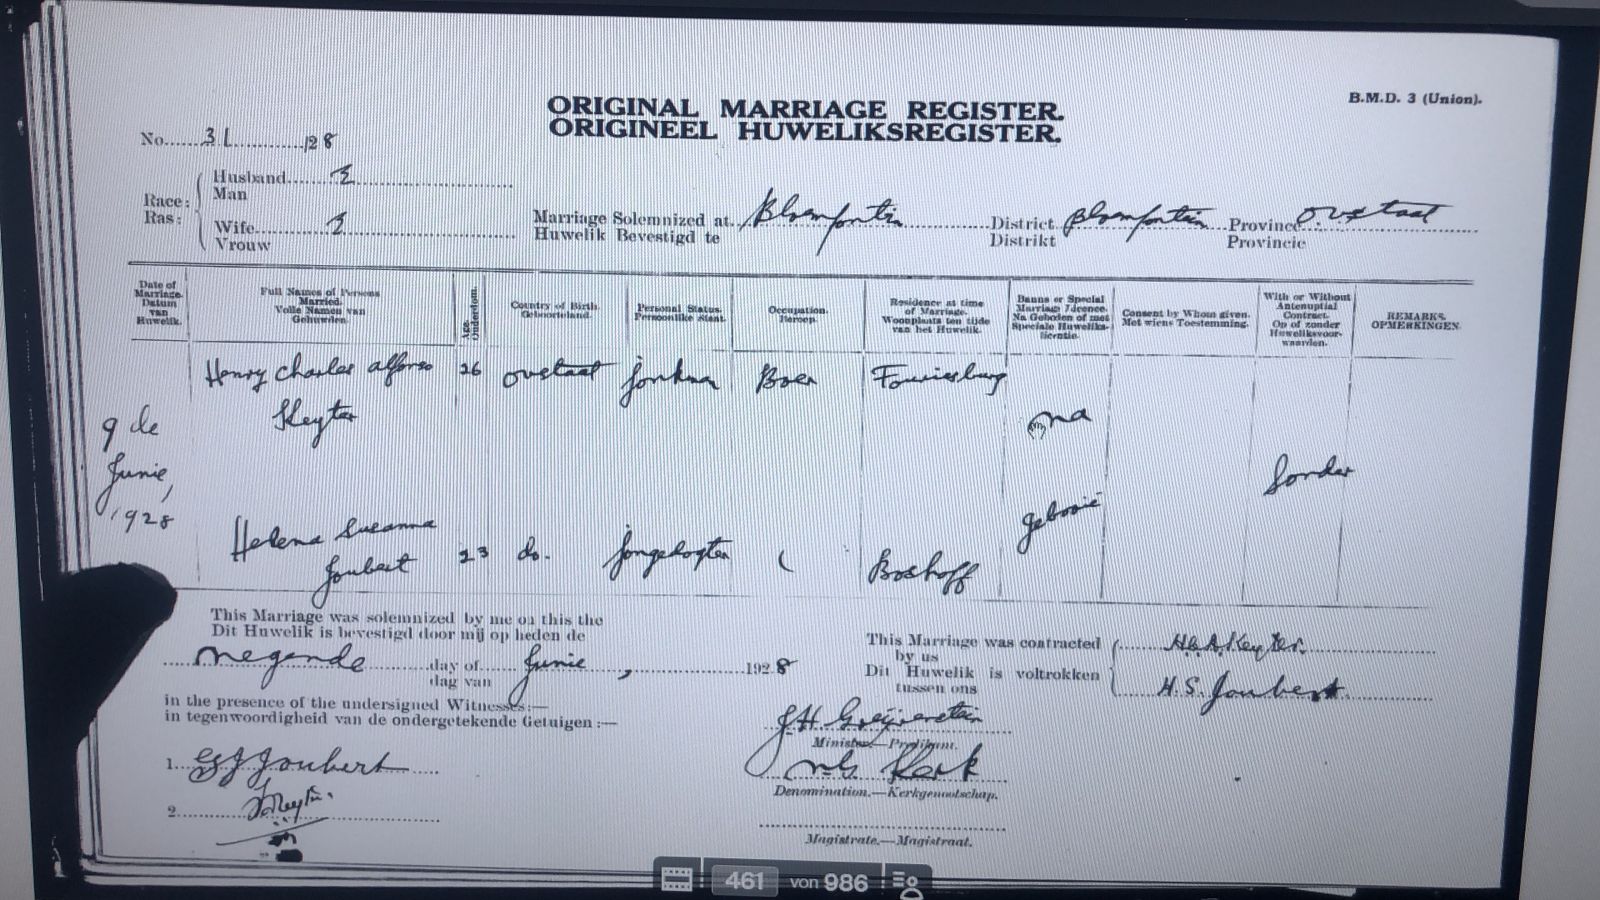 ORIGINAL MARRIAGE REGISTER.
ORIGINEEL HUWELIKSREGISTER.
B.M.D. 3 (Union).
No. 31 /28
Race: Husband
Ras: Man
Wife
Vrouw
Marriage Solemnized at Bloemfontein District Bloemfontein Province Ovstaat
Huwelik Bevestigd te Distrikt Provincie
Date of Marriage. Datum van Huwelik.
Full Names of Persons Married. Volle Namen van Gehuwden.
Age. Ouderdom.
Country of Birth. Geboorteland.
Personal Status. Persoonlike Staat.
Occupation. Beroep.
Residence at time of Marriage. Woonplaats ten tijde van het Huwelik.
Banns or Special Marriage Licence. Na Geboden of met Speciale Huweliks-licentie.
Consent by Whom given. Met wiens Toestemming.
With or Without Antenuptial Contract. Op of zonder Huweliksvoor-waarden.
REMARKS. OPMERKINGEN.
Henry Charles Alfonso 26 Ovstaat Jonkman Boer Fouriesburg
Keyter
9de
Junie,
1928
na
gebooie
Sonder
Helena Susanna
Joubert 23 do. Jongedogter Boshoff
This Marriage was solemnized by me on this the
Dit Huwelik is bevestigd door mij op heden de
negende day of Junie, 1928
dag van
in the presence of the undersigned Witnesses:—
in tegenwoordigheid van de ondergetekende Getuigen:—
1. Joubert
2. Keyter
This Marriage was contracted by us H.C.A. Keyter
Dit Huwelik is voltrokken tussen ons H.S. Joubert
Minister—Predikant.
N.G. Kerk
Denomination.—Kerkgenootschap.
Magistrate.—Magistraat.
461 von 986